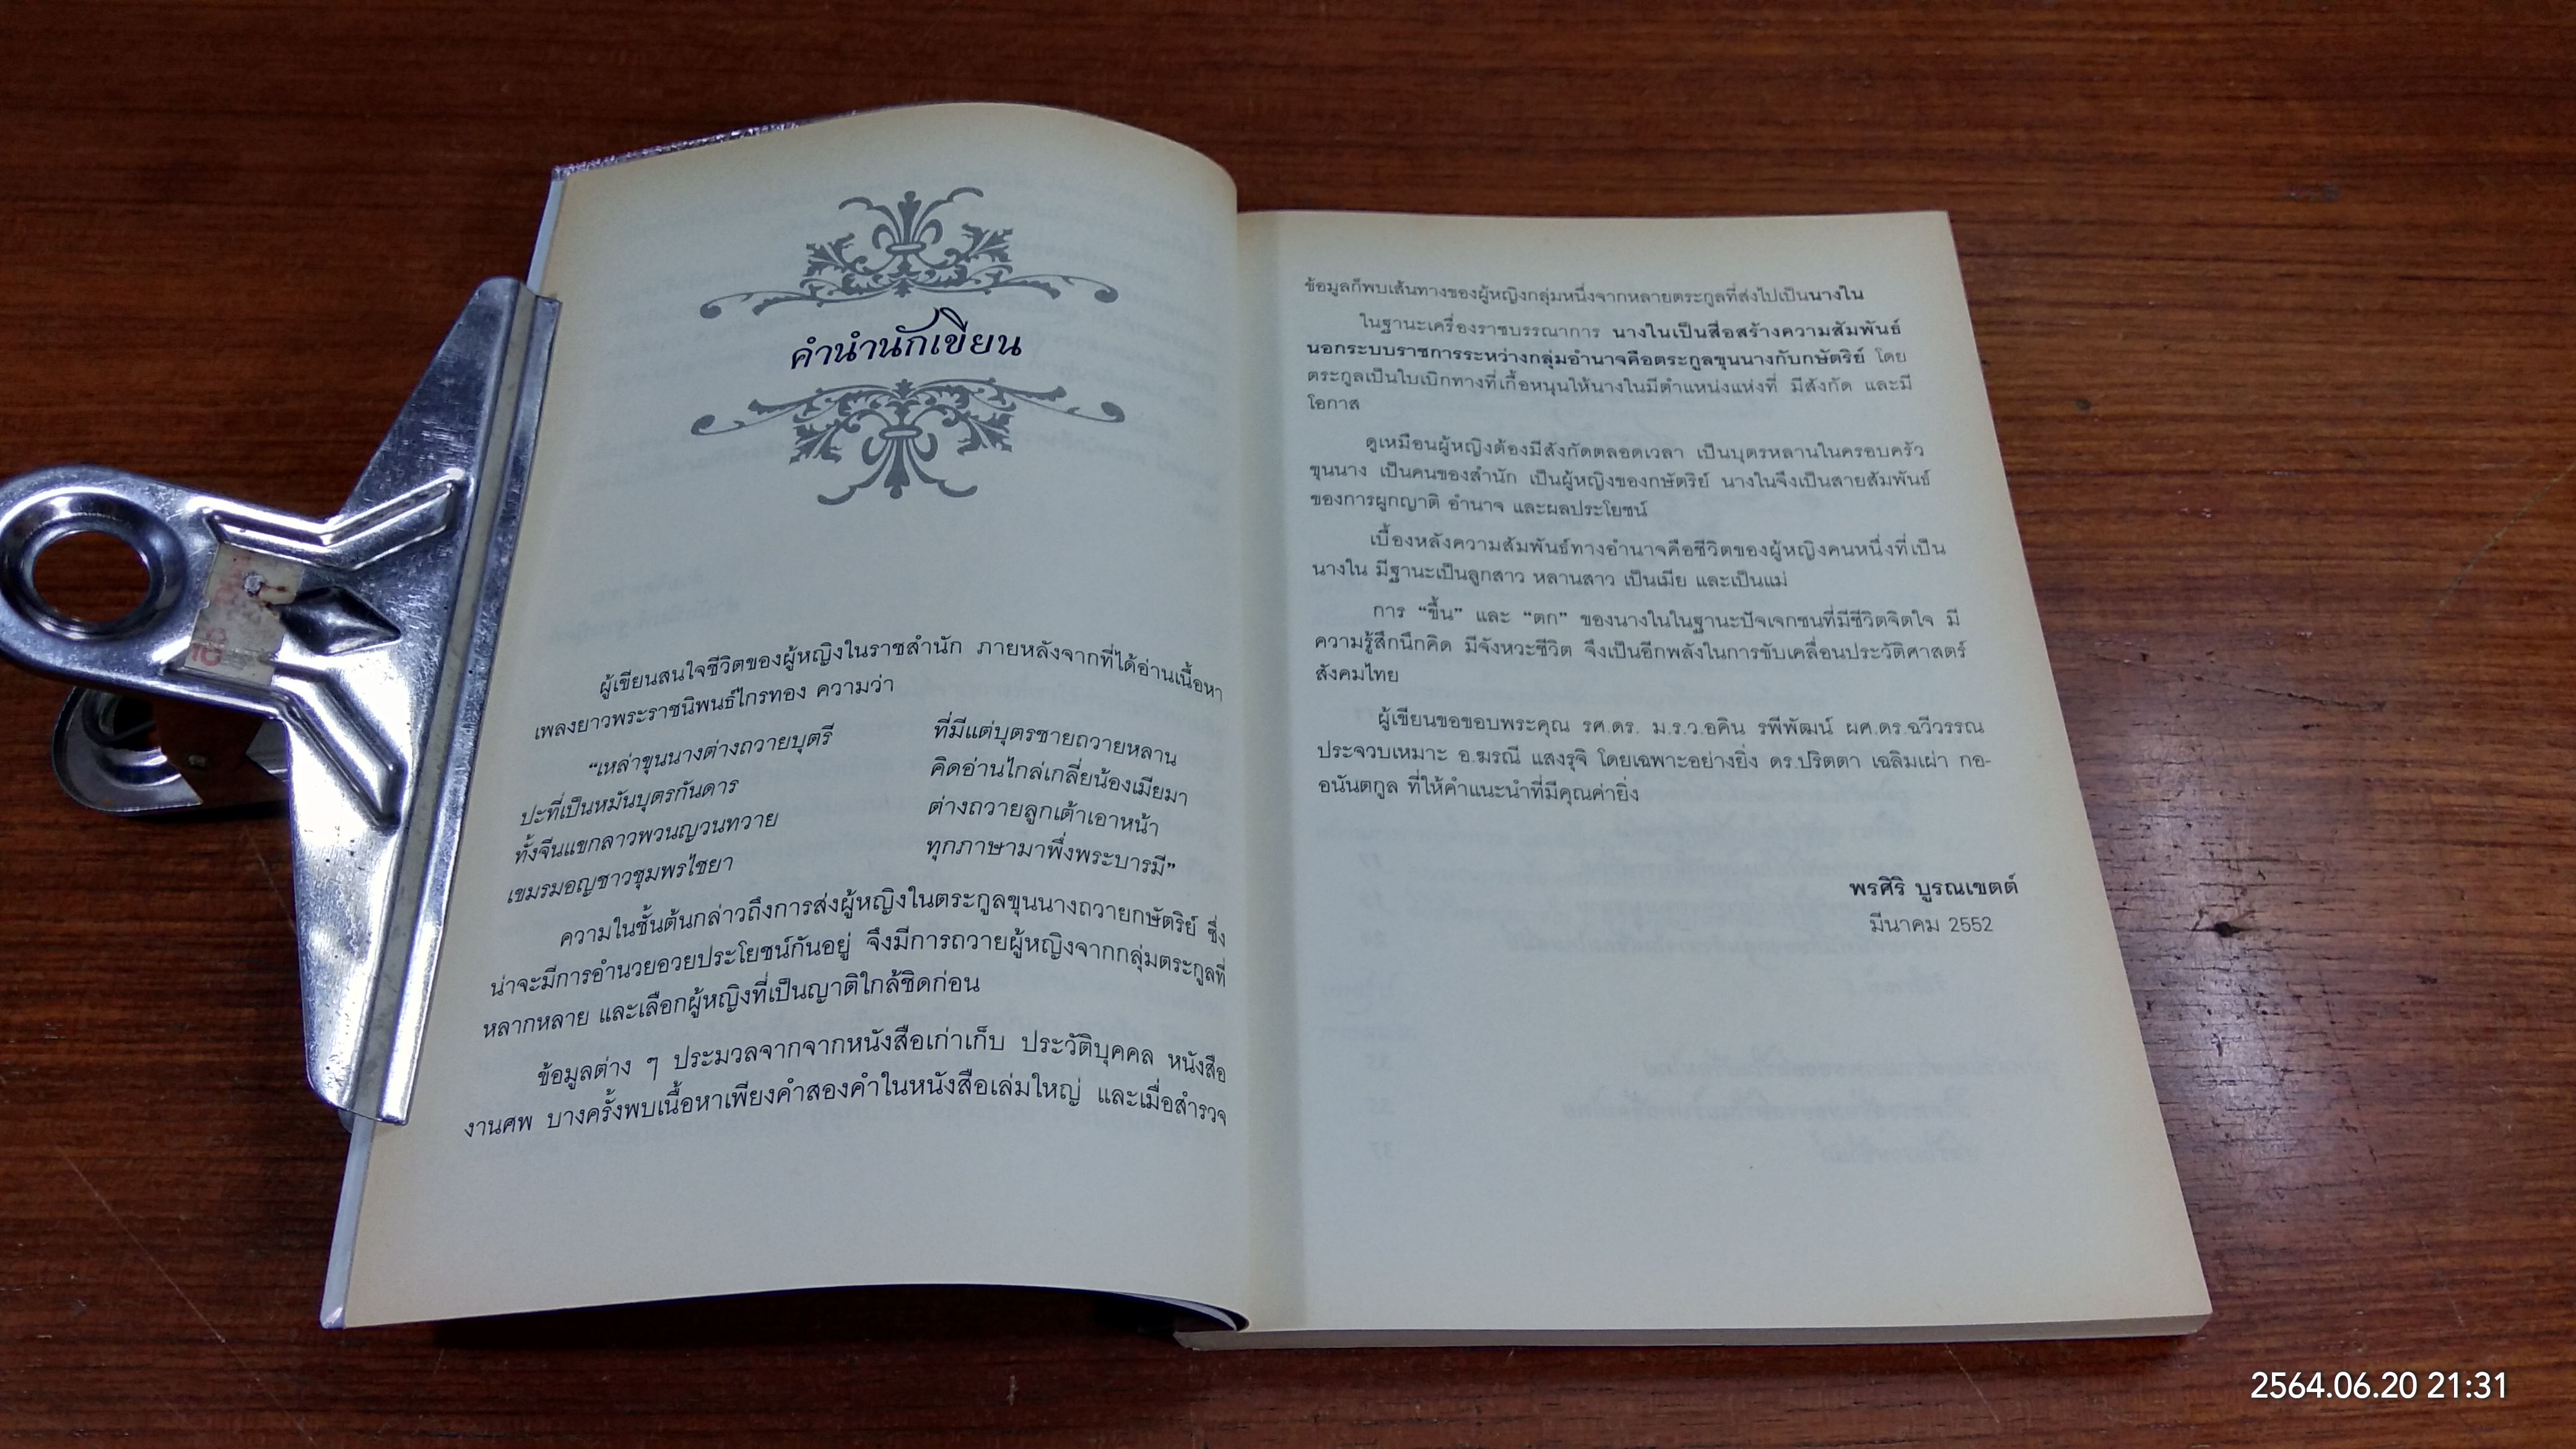 คำนำนักเขียน
ผู้เขียนสนใจชีวิตของผู้หญิงในราชสำนัก ภายหลังจากที่ได้อ่านเนื้อหา
เพลงยาวพระราชนิพนธ์ไกรทอง ความว่า
“เหล่าขุนนางต่างถวายบุตรี ที่มีแต่บุตรชายถวายหลาน
ปะที่เป็นหมันบุตรกันดาร คิดอ่านไกล่เกลี่ยน้องเมียมา
ทั้งจีนแขกลาวพวนญวนทวาย ต่างถวายลูกเต้าเอาหน้า
เขมรมอญชาวชุมพรไชยา ทุกภาษามาพึ่งพระบารมี”
ความในชั้นต้นกล่าวถึงการส่งผู้หญิงในตระกูลขุนนางถวายกษัตริย์ ซึ่ง
น่าจะมีการอำนวยอวยประโยชน์กันอยู่ จึงมีการถวายผู้หญิงจากกลุ่มตระกูลที่
หลากหลาย และเลือกผู้หญิงที่เป็นญาติใกล้ชิดก่อน
ข้อมูลต่าง ๆ ประมวลจากจากหนังสือเก่าเก็บ ประวัติบุคคล หนังสือ
งานศพ บางครั้งพบเนื้อหาเพียงคำสองคำในหนังสือเล่มใหญ่ และเมื่อสำรวจ
ข้อมูลก็พบเส้นทางของผู้หญิงกลุ่มหนึ่งจากหลายตระกูลที่ส่งไปเป็นนางใน
ในฐานะเครื่องราชบรรณาการ นางในเป็นสื่อสร้างความสัมพันธ์
นอกระบบราชการระหว่างกลุ่มอำนาจคือตระกูลขุนนางกับกษัตริย์ โดย
ตระกูลเป็นใบเบิกทางที่เกื้อหนุนให้นางในมีตำแหน่งแห่งที่ มีสังกัด และมี
โอกาส
ดูเหมือนผู้หญิงต้องมีสังกัดตลอดเวลา เป็นบุตรหลานในครอบครัว
ขุนนาง เป็นคนของสำนัก เป็นผู้หญิงของกษัตริย์ นางในจึงเป็นสายสัมพันธ์
ของการผูกญาติ อำนาจ และผลประโยชน์
เบื้องหลังความสัมพันธ์ทางอำนาจคือชีวิตของผู้หญิงคนหนึ่งที่เป็น
นางใน มีฐานะเป็นลูกสาว หลานสาว เป็นเมีย และเป็นแม่
การ “ขึ้น” และ “ตก” ของนางในในฐานะปัจเจกชนที่มีชีวิตจิตใจ มี
ความรู้สึกนึกคิด มีจังหวะชีวิต จึงเป็นอีกพลังในการขับเคลื่อนประวัติศาสตร์
สังคมไทย
ผู้เขียนขอขอบพระคุณ รศ.ดร. ม.ร.ว.อคิน รพีพัฒน์ ผศ.ดร.ฉวีวรรณ
ประจวบเหมาะ อ.ฆรณี แสงรุจิ โดยเฉพาะอย่างยิ่ง ดร.ปริตตา เฉลิมเผ่า กอ-
อนันตกูล ที่ให้คำแนะนำที่มีคุณค่ายิ่ง
พรศิริ บูรณเขตต์
มีนาคม 2552
2564.06.20 21:31